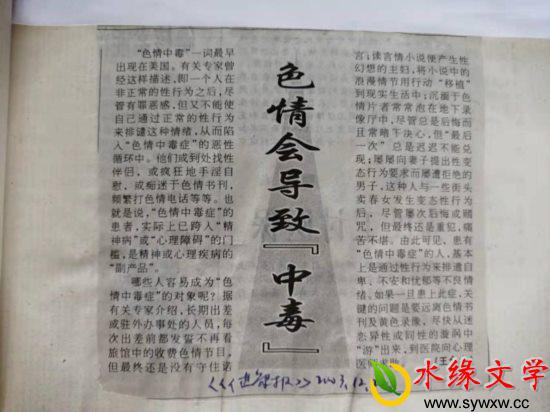 “色情中毒”一词最早
出现在美国。有关专家曾
经这样描述,即一个人在
非正常的性行为之后,尽
管有罪恶感,但又不能使
自己通过正常的性行为
来排键这种情绪,从而陷
入“色情中毒症”的恶性
循环中。他们或到处找性
伴侣,或疯狂地手淫自
慰,或痴迷于色情书刊,
频繁打色情电话等等。也
就是说,“色情中毒症”的
患者,实际上已跨入“精
神病”或“心理障碍”的门
槛,是精神或心理疾病的
“副产品”。
哪些人容易成为“色
情中毒症”的对象呢?据
有关专家介绍,长期出差
或驻外办事处的人员,每
次出差前都发誓不再看
旅馆中的收费色情节目,
但最终还是没有守住诺
色情会导致『中毒』
言;读言情小说便产生性
幻想的主妇,将小说中的
浪漫情节用行动“移植”
到现实生活中;沉湎于色
情片者常常泡在地下录
像厅中,尽管总是后悔而
且常暗下决心,但“最后
一次”总是迟迟不能兑
现;屡屡向妻子提出性变
态行为要求而屡遭拒绝的
男子,这种人与一些街头
卖春女发生变态性行为
后,尽管屡次后悔或赌
咒,但最终还是重犯,痛
苦不堪。由此可见,患有
“色情中毒症”的人,基本
上是通过性行为来排遣自
卑、不安和忧郁等不良情
绪。如果一旦患上此症,关
键的问题是要远离色情书
刊及黄色录像,尽快从迷
恋异性或同性的漩涡中
“游”出来,到医院向心理
(王
报》2003.12.
水缘文学
www.sywxw.cc